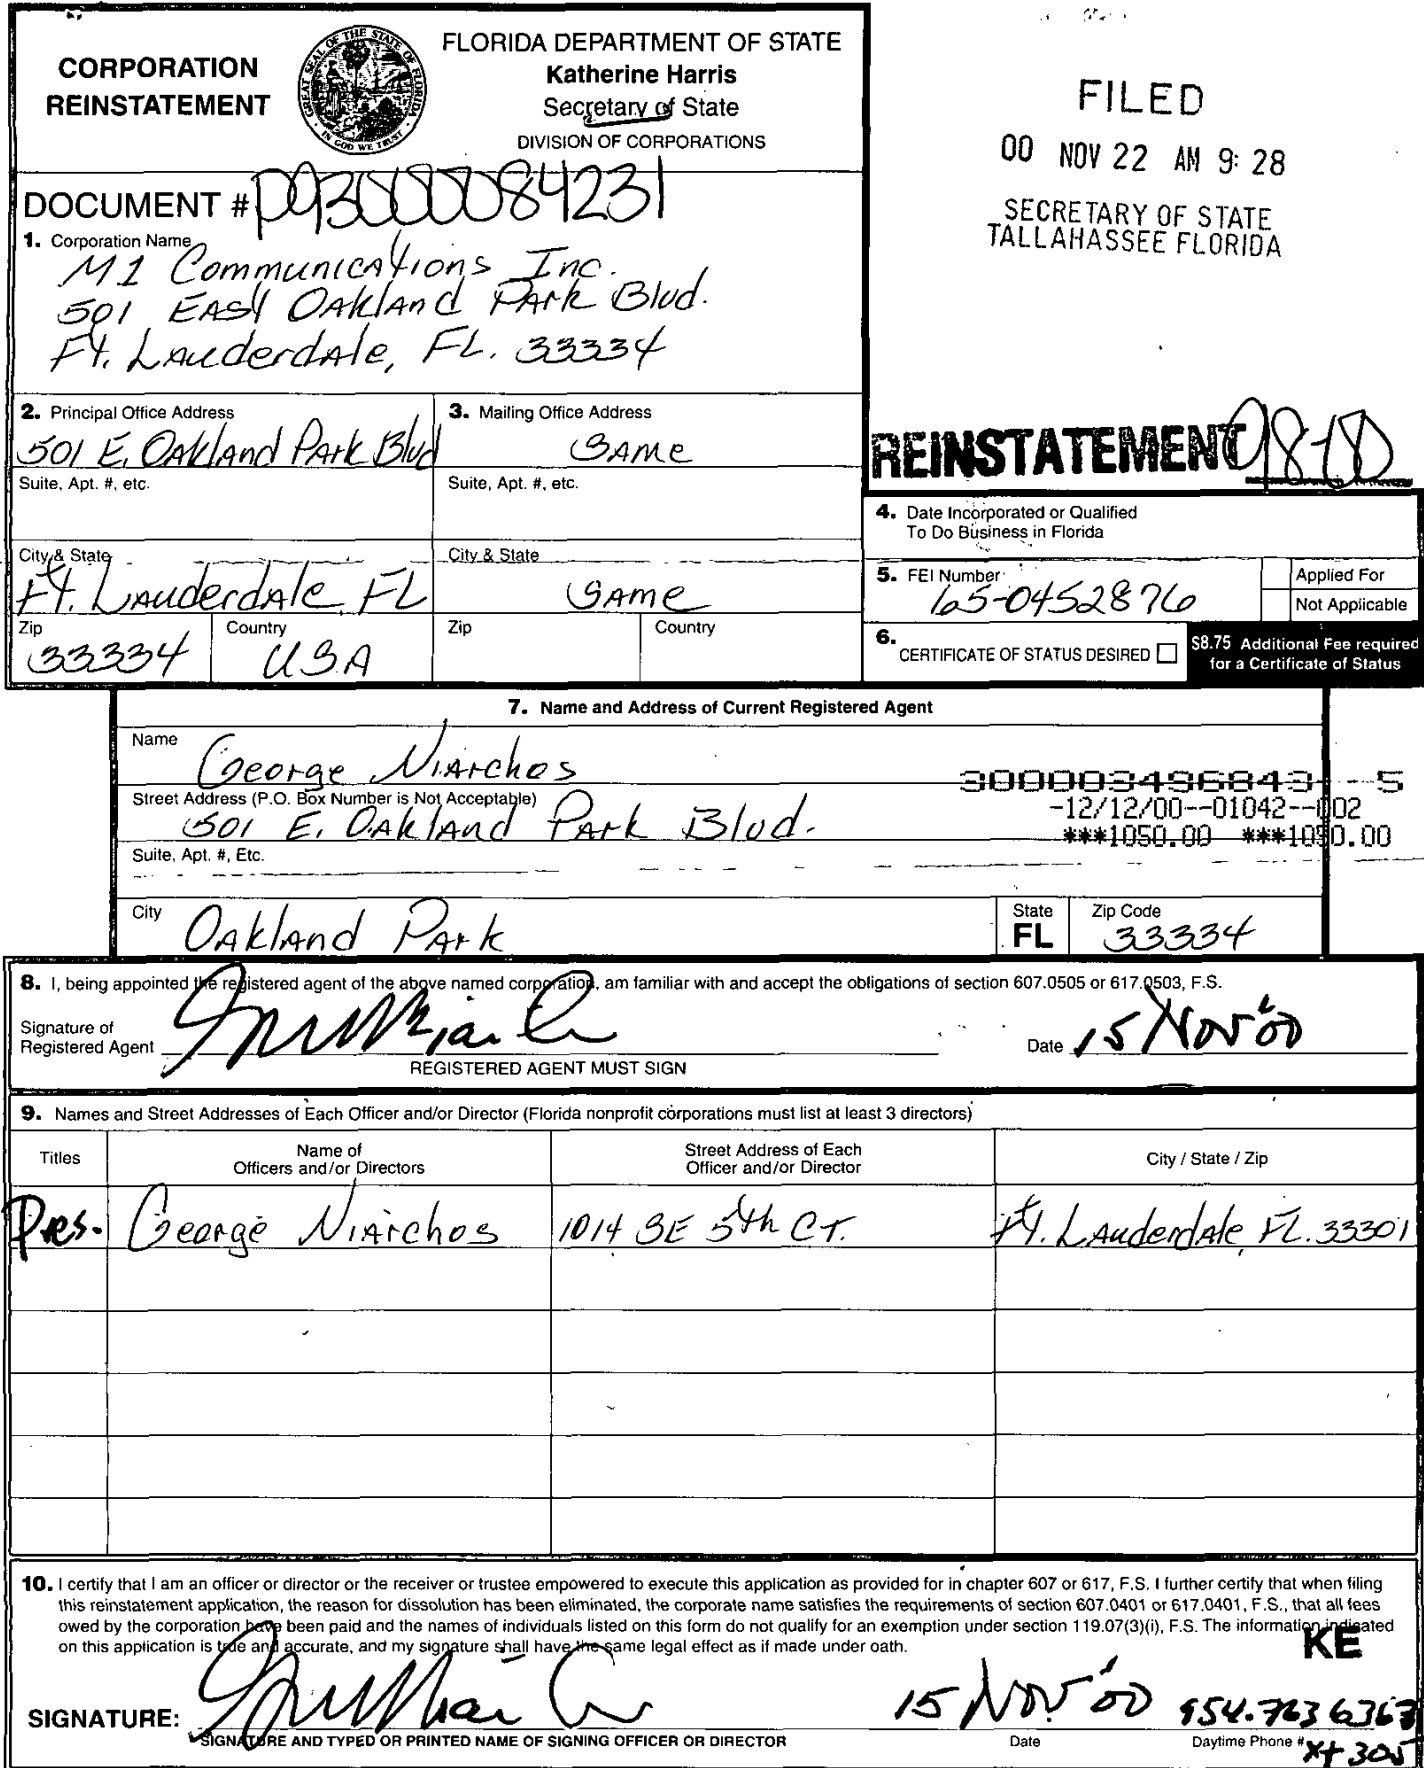 CORPORATION
REINSTATEMENT
GREAT SEAL OF THE STATE OF FLORIDA
IN GOD WE TRUST
FLORIDA DEPARTMENT OF STATE
Katherine Harris
Secretary of State
DIVISION OF CORPORATIONS
FILED
00 NOV 22 AM 9:28
SECRETARY OF STATE
TALLAHASSEE FLORIDA
DOCUMENT # P93000084231
1. Corporation Name
M1 Communications Inc.
501 East Oakland Park Blvd.
Ft. Lauderdale, FL. 33334
2. Principal Office Address
501 E. Oakland Park Blvd
3. Mailing Office Address
Same
REINSTATEMENT
Suite, Apt. #, etc.
Suite, Apt. #, etc.
4. Date Incorporated or Qualified
To Do Business in Florida
City & State
Ft. Lauderdale, FL
City & State
Same
5. FEI Number
65-0452876
Applied For
Not Applicable
Zip
33334
Country
USA
Zip
Country
6. CERTIFICATE OF STATUS DESIRED
$8.75 Additional Fee required
for a Certificate of Status
7. Name and Address of Current Registered Agent
Name
George Niarchos
300003496843--5
-12/12/00--01042--002
***1050.00 ***1050.00
Street Address (P.O. Box Number is Not Acceptable)
501 E. Oakland Park Blvd.
Suite, Apt. #, Etc.
City
Oakland Park
State
FL
Zip Code
33334
8. I, being appointed the registered agent of the above named corporation, am familiar with and accept the obligations of section 607.0505 or 617.0503, F.S.
Signature of
Registered Agent
REGISTERED AGENT MUST SIGN
Date 15 Nov '00
9. Names and Street Addresses of Each Officer and/or Director (Florida nonprofit corporations must list at least 3 directors)
Titles
Name of
Officers and/or Directors
Street Address of Each
Officer and/or Director
City / State / Zip
Pres. George Niarchos 1014 SE 5th CT. Ft. Lauderdale, FL. 33301
10. I certify that I am an officer or director or the receiver or trustee empowered to execute this application as provided for in chapter 607 or 617, F.S. I further certify that when filing
this reinstatement application, the reason for dissolution has been eliminated, the corporate name satisfies the requirements of section 607.0401 or 617.0401, F.S., that all fees
owed by the corporation have been paid and the names of individuals listed on this form do not qualify for an exemption under section 119.07(3)(i), F.S. The information indicated
on this application is true and accurate, and my signature shall have the same legal effect as if made under oath.
KE
SIGNATURE:
15 Nov '00
954.763 6367
xt 305
SIGNATURE AND TYPED OR PRINTED NAME OF SIGNING OFFICER OR DIRECTOR
Date
Daytime Phone #